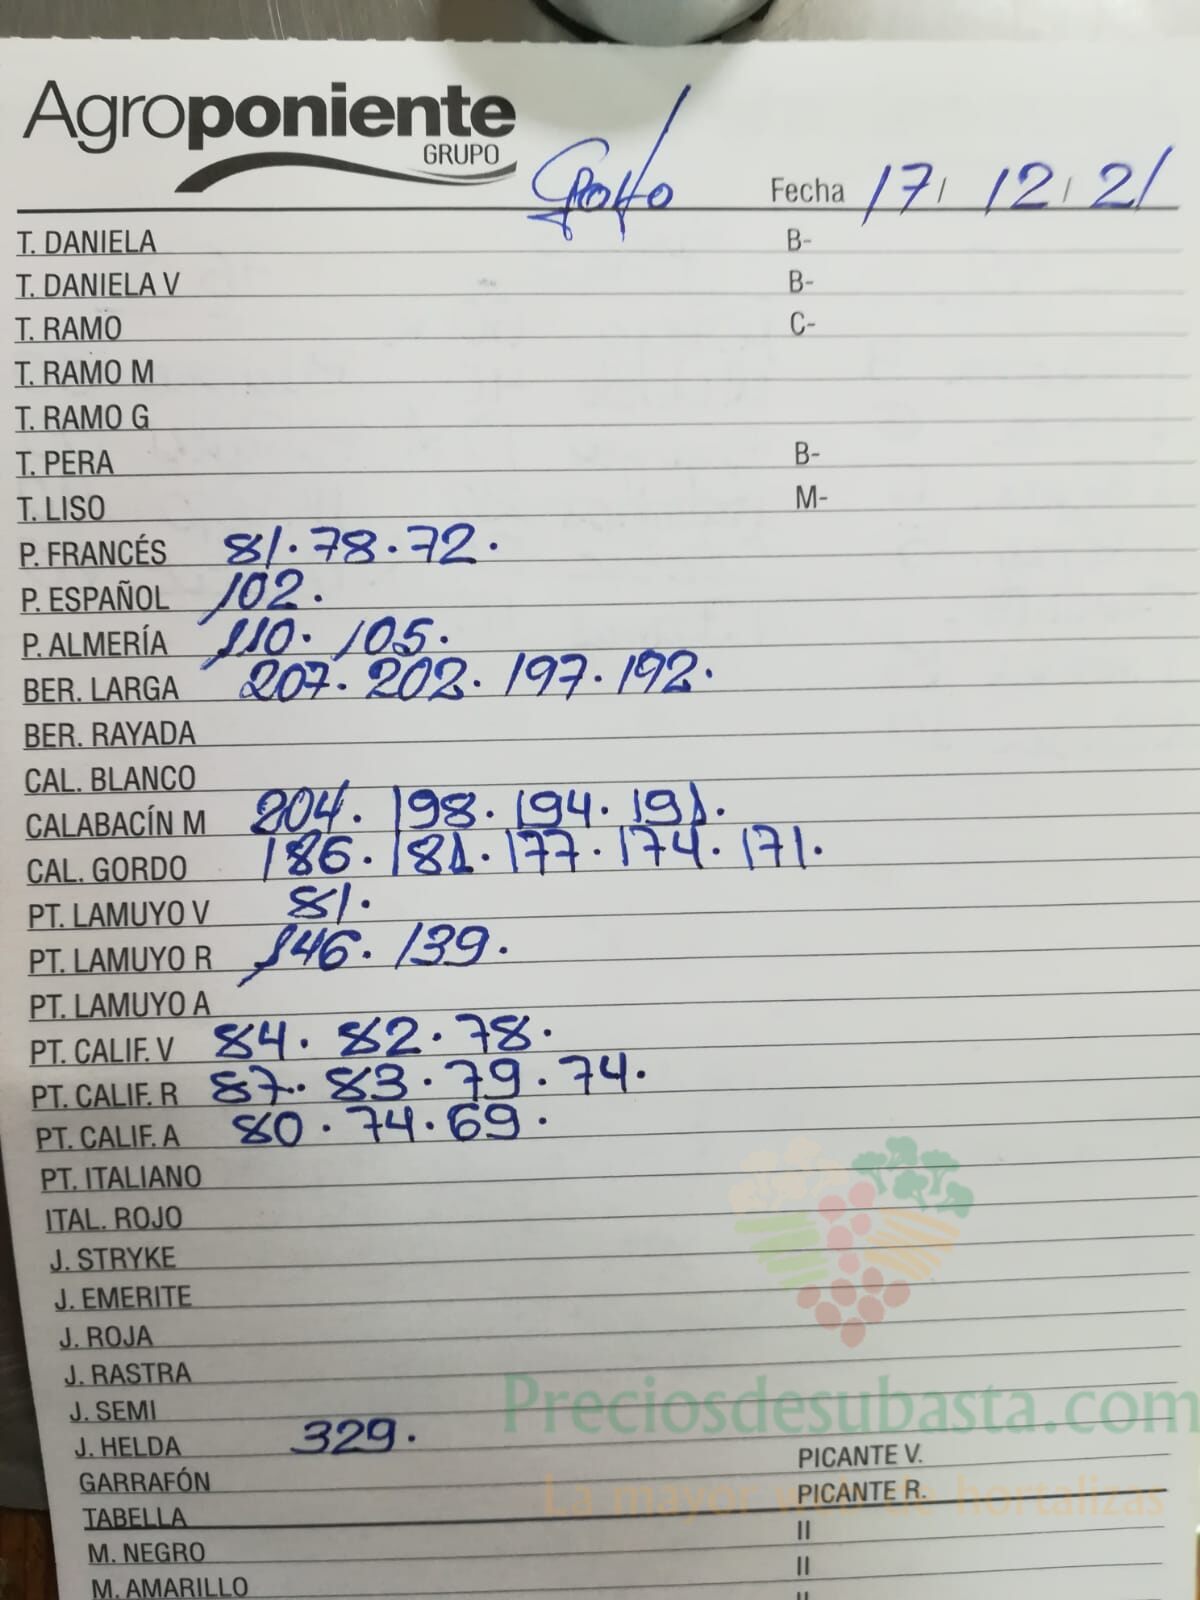 Agroponiente
GRUPO
Fecha 17/ 12/ 21
T. DANIELA B-
T. DANIELA V B-
T. RAMO C-
T. RAMO M
T. RAMO G
T. PERA B-
T. LISO M-
P. FRANCÉS 81. 78. 72.
P. ESPAÑOL 102.
P. ALMERÍA 110. 105.
BER. LARGA 207. 202. 197. 192.
BER. RAYADA
CAL. BLANCO
CALABACÍN M 204. 198. 194. 191.
CAL. GORDO 186. 181. 177. 174. 171.
PT. LAMUYO V 81.
PT. LAMUYO R 146. 139.
PT. LAMUYO A
PT. CALIF. V 84. 82. 78.
PT. CALIF. R 87. 83. 79. 74.
PT. CALIF. A 80. 74. 69.
PT. ITALIANO
ITAL. ROJO
J. STRYKE
J. EMERITE
J. ROJA
J. RASTRA
J. SEMI
Preciosdesubasta.com
J. HELDA 329.
GARRAFÓN PICANTE V.
La mayor web de hortalizas
TABELLA PICANTE R.
M. NEGRO II
M. AMARILLO II